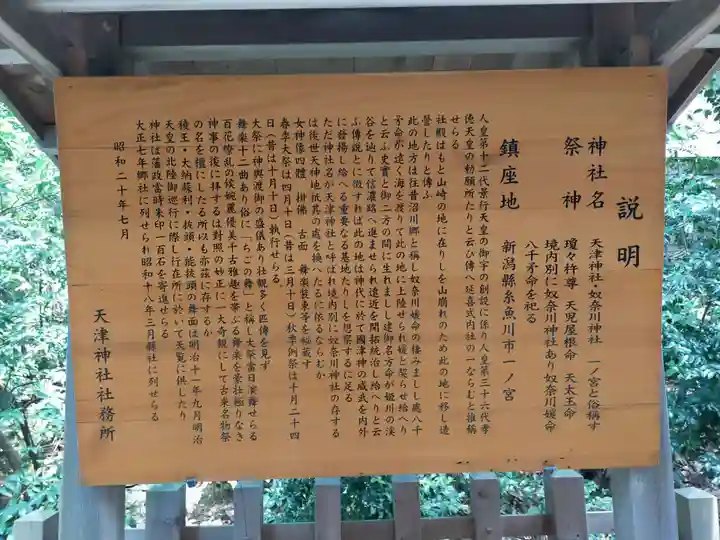 説明
神社名 天津神社・奴奈川神社 一ノ宮と俗稱す
祭神 瓊々杵尊 天児屋根命 天太玉命
境内別に奴奈川神社あり奴奈川媛命
八千矛命を祀る
鎮座地 新潟縣糸魚川市一ノ宮
人皇第十二代景行天皇の御宇の創設に係り人皇第三十六代孝
徳天皇の勅願所たりと云ひ傳へ延喜式内社の一ならむと推稱
せらる
社殿はもと山崎の地に在りしを山崩れのため此の地に移し造
營したりと傳ふ
此の地方は往昔沼川郷と稱し奴奈川媛命の棲みまし處八千
矛命が遠く海を渡りて此の地に上陸せられ媛と契らせ給へり
と云ふ史實と御二方の間に生れましし建御名方命が姫川の渓
谷を辿りて信濃路へ進ませられ遠近を開拓統治し給へりと云
ふ傳説とに徴すれば此の地は神代に於て國津神の威武を内外
に發揚し給へる重要なる基地たりしを想察するに足る
ただ神社名が天津神社と呼ばれ境内別に奴奈川神社の存する
は後世天神地祇其の處を換へたるに依るならむか
女神像四體 掛佛 古面 舞楽装束等を秘蔵す
春季大祭は四月十日（昔は三月十日）秋季例祭は十月二十四
日（昔は十月十日）執行せらる
大祭に神輿渡御の盛儀あり壮觀多く匹儔を見ず
舞楽十二曲あり俗に「ちごの舞」と稱し大祭當日演舞せらる
百花燎乱の候婉麗優美千古雅趣を帯ぶる舞楽を豪壮極りなき
神事の後に拝するは對照の妙正に一大奇觀にして古来名物祭
の名を擅にしたる所以も亦茲に存するか
稜王・大納蘇利・抜頭・能抜頭の舞面は明治十一年九月明治
天皇の北陸御巡行に際し行在所に於いて天覧に供したり
神社は藩政當時朱印一百石を寄進せらる
大正七年郷社に列せられ昭和十八年三月縣社に列せらる
昭和二十年七月
天津神社社務所